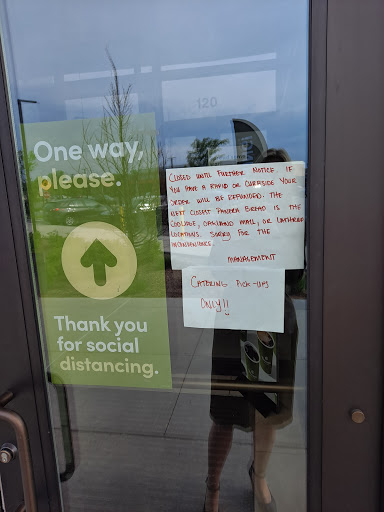 120
One way,
please.
Thank you
for social
distancing.
CLOSED UNTIL FURTHER NOTICE. IF
YOU HAVE A RAPID OR CURBSIDE YOUR
ORDER WILL BE REFUNDED. THE
NEXT CLOSEST PANERA BREAD IS THE
COOLIDGE, OAKLAND MALL, OR LATHRUP
LOCATIONS. SORRY FOR THE
INCONVENIENCE.
MANAGEMENT
CATERING PICK-UPS
ONLY!!